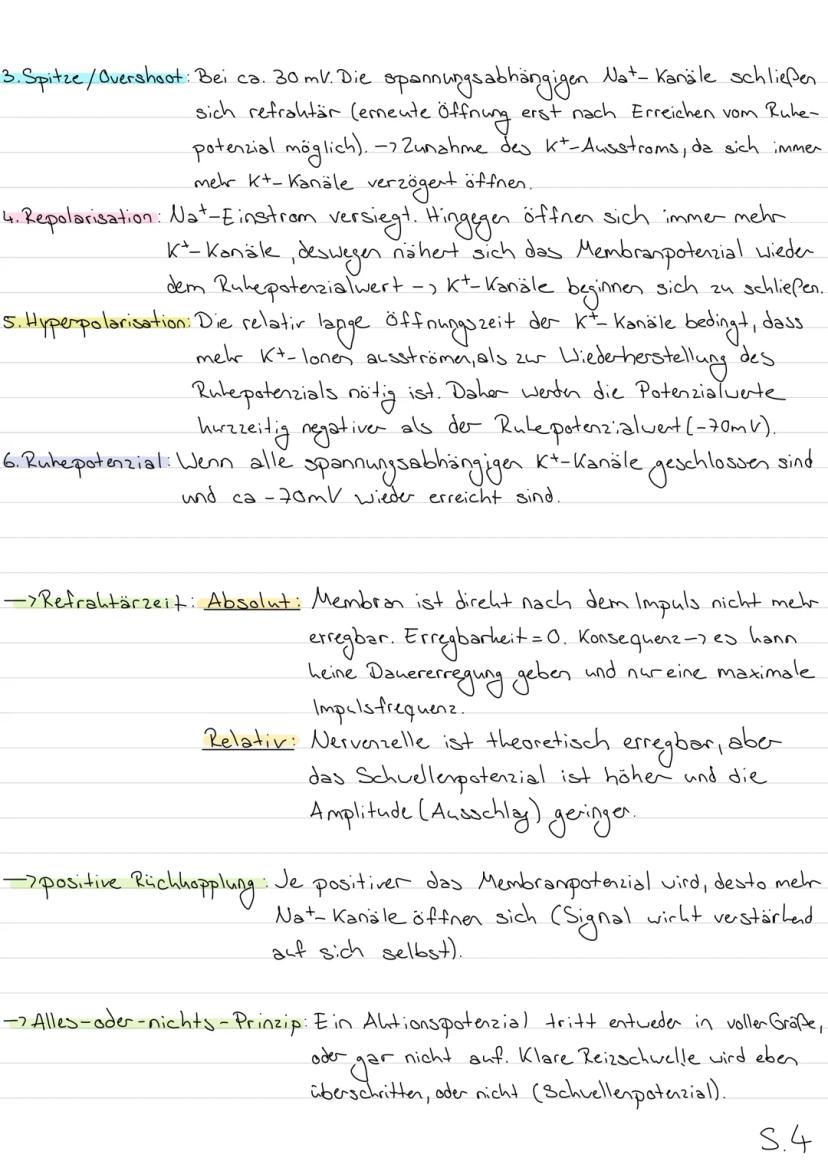 3. Spitze/Overshoot: Bei ca. 30 mV. Die spannungsabhängigen Na⁺-Kanäle schließen
sich refraktär (erneute Öffnung erst nach Erreichen vom Ruhe-
potenzial möglich). -> Zunahme des K⁺-Ausstroms, da sich immer
mehr K⁺-Kanäle verzögert öffnen.
4. Repolarisation: Na⁺-Einstrom versiegt. Hingegen öffnen sich immer mehr
K⁺-Kanäle, deswegen nähert sich das Membranpotenzial wieder
dem Ruhepotenzialwert -> K⁺-Kanäle beginnen sich zu schließen.
5. Hyperpolarisation: Die relativ lange Öffnungszeit der K⁺-Kanäle bedingt, dass
mehr K⁺-Ionen ausströmen, als zur Wiederherstellung des
Ruhepotenzials nötig ist. Daher werden die Potenzialwerte
kurzzeitig negativer als der Ruhepotenzialwert (-70mV).
6. Ruhepotenzial: Wenn alle spannungsabhängigen K⁺-Kanäle geschlossen sind
und ca -70mV wieder erreicht sind.
-> Refraktärzeit: Absolut: Membran ist direkt nach dem Impuls nicht mehr
erregbar. Erregbarkeit = 0. Konsequenz -> es kann
keine Dauererregung geben und nur eine maximale
Impulsfrequenz.
Relativ: Nervenzelle ist theoretisch erregbar, aber
das Schwellenpotenzial ist höher und die
Amplitude (Ausschlag) geringer.
-> positive Rückkopplung: Je positiver das Membranpotenzial wird, desto mehr
Na⁺-Kanäle öffnen sich (Signal wirkt verstärkend
auf sich selbst).
-> Alles-oder-nichts-Prinzip: Ein Aktionspotenzial tritt entweder in voller Größe,
oder gar nicht auf. Klare Reizschwelle wird eben
überschritten, oder nicht (Schwellenpotenzial).
S.4